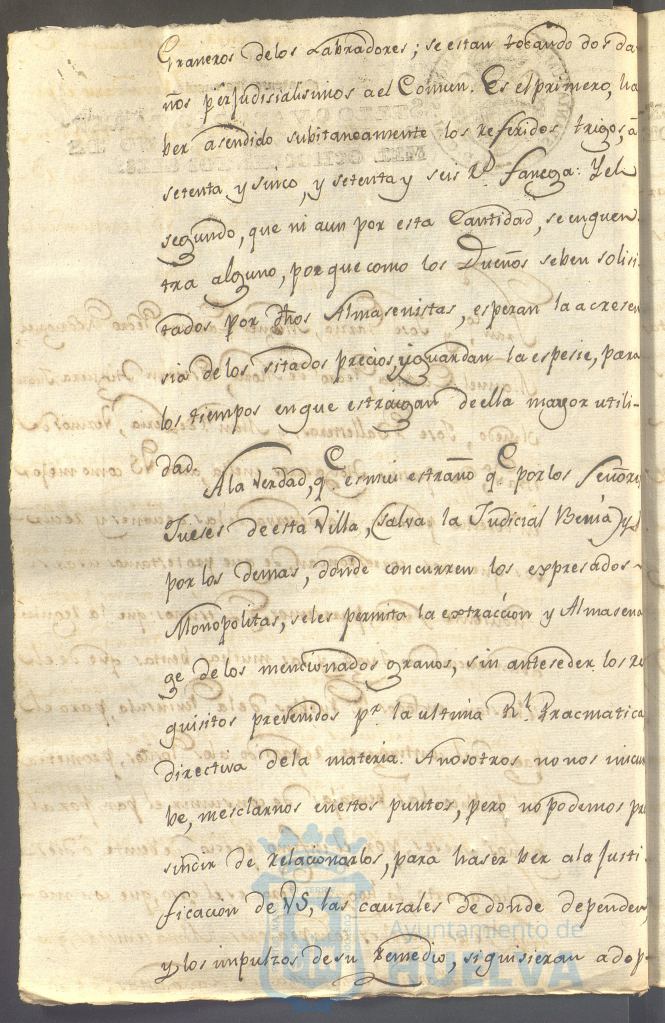 Graneros delos Labradores; se estan tocando dos da
ños perjudisialisimos a el Comun. Es el primero, ha
ver asendido subitaneamente los referidos trigos, á
setenta, y sinco, y setenta y seis Rs. fanega: Y el
segundo, que ni aun por esta Cantidad, se enquen
tra alguno, por que como los Dueños seben solisi
tados por dhos Almasenistas, esperan la acresen
sia delos sitados precios, y guardan la espesie, para
los tiempos en que estraigan de ella mayor utili-
dad.
Ala verdad, qe. es mui estraño qe. por los Señores
Jueses de esta Villa, (salva la Judicial Benia) y
por los demas, donde concurren los expresados
Monopolitas, seles permita la extraccion y Almasena
ge de los mencionados granos, sin anteseder los re
quisitos prevenidos pr. la ultima Rl. Pracmatica
directiva dela materia. Anosotros no nos incum
be, mesclarnos enestos puntos, pero no podemos pre
sindir de relacionarlos, para haser ver ala Justi
ficacion de VS, las cauzales de donde dependen,
y los impulzos de su remedio, si quisieran adop
Ayuntamiento de
HUELVA